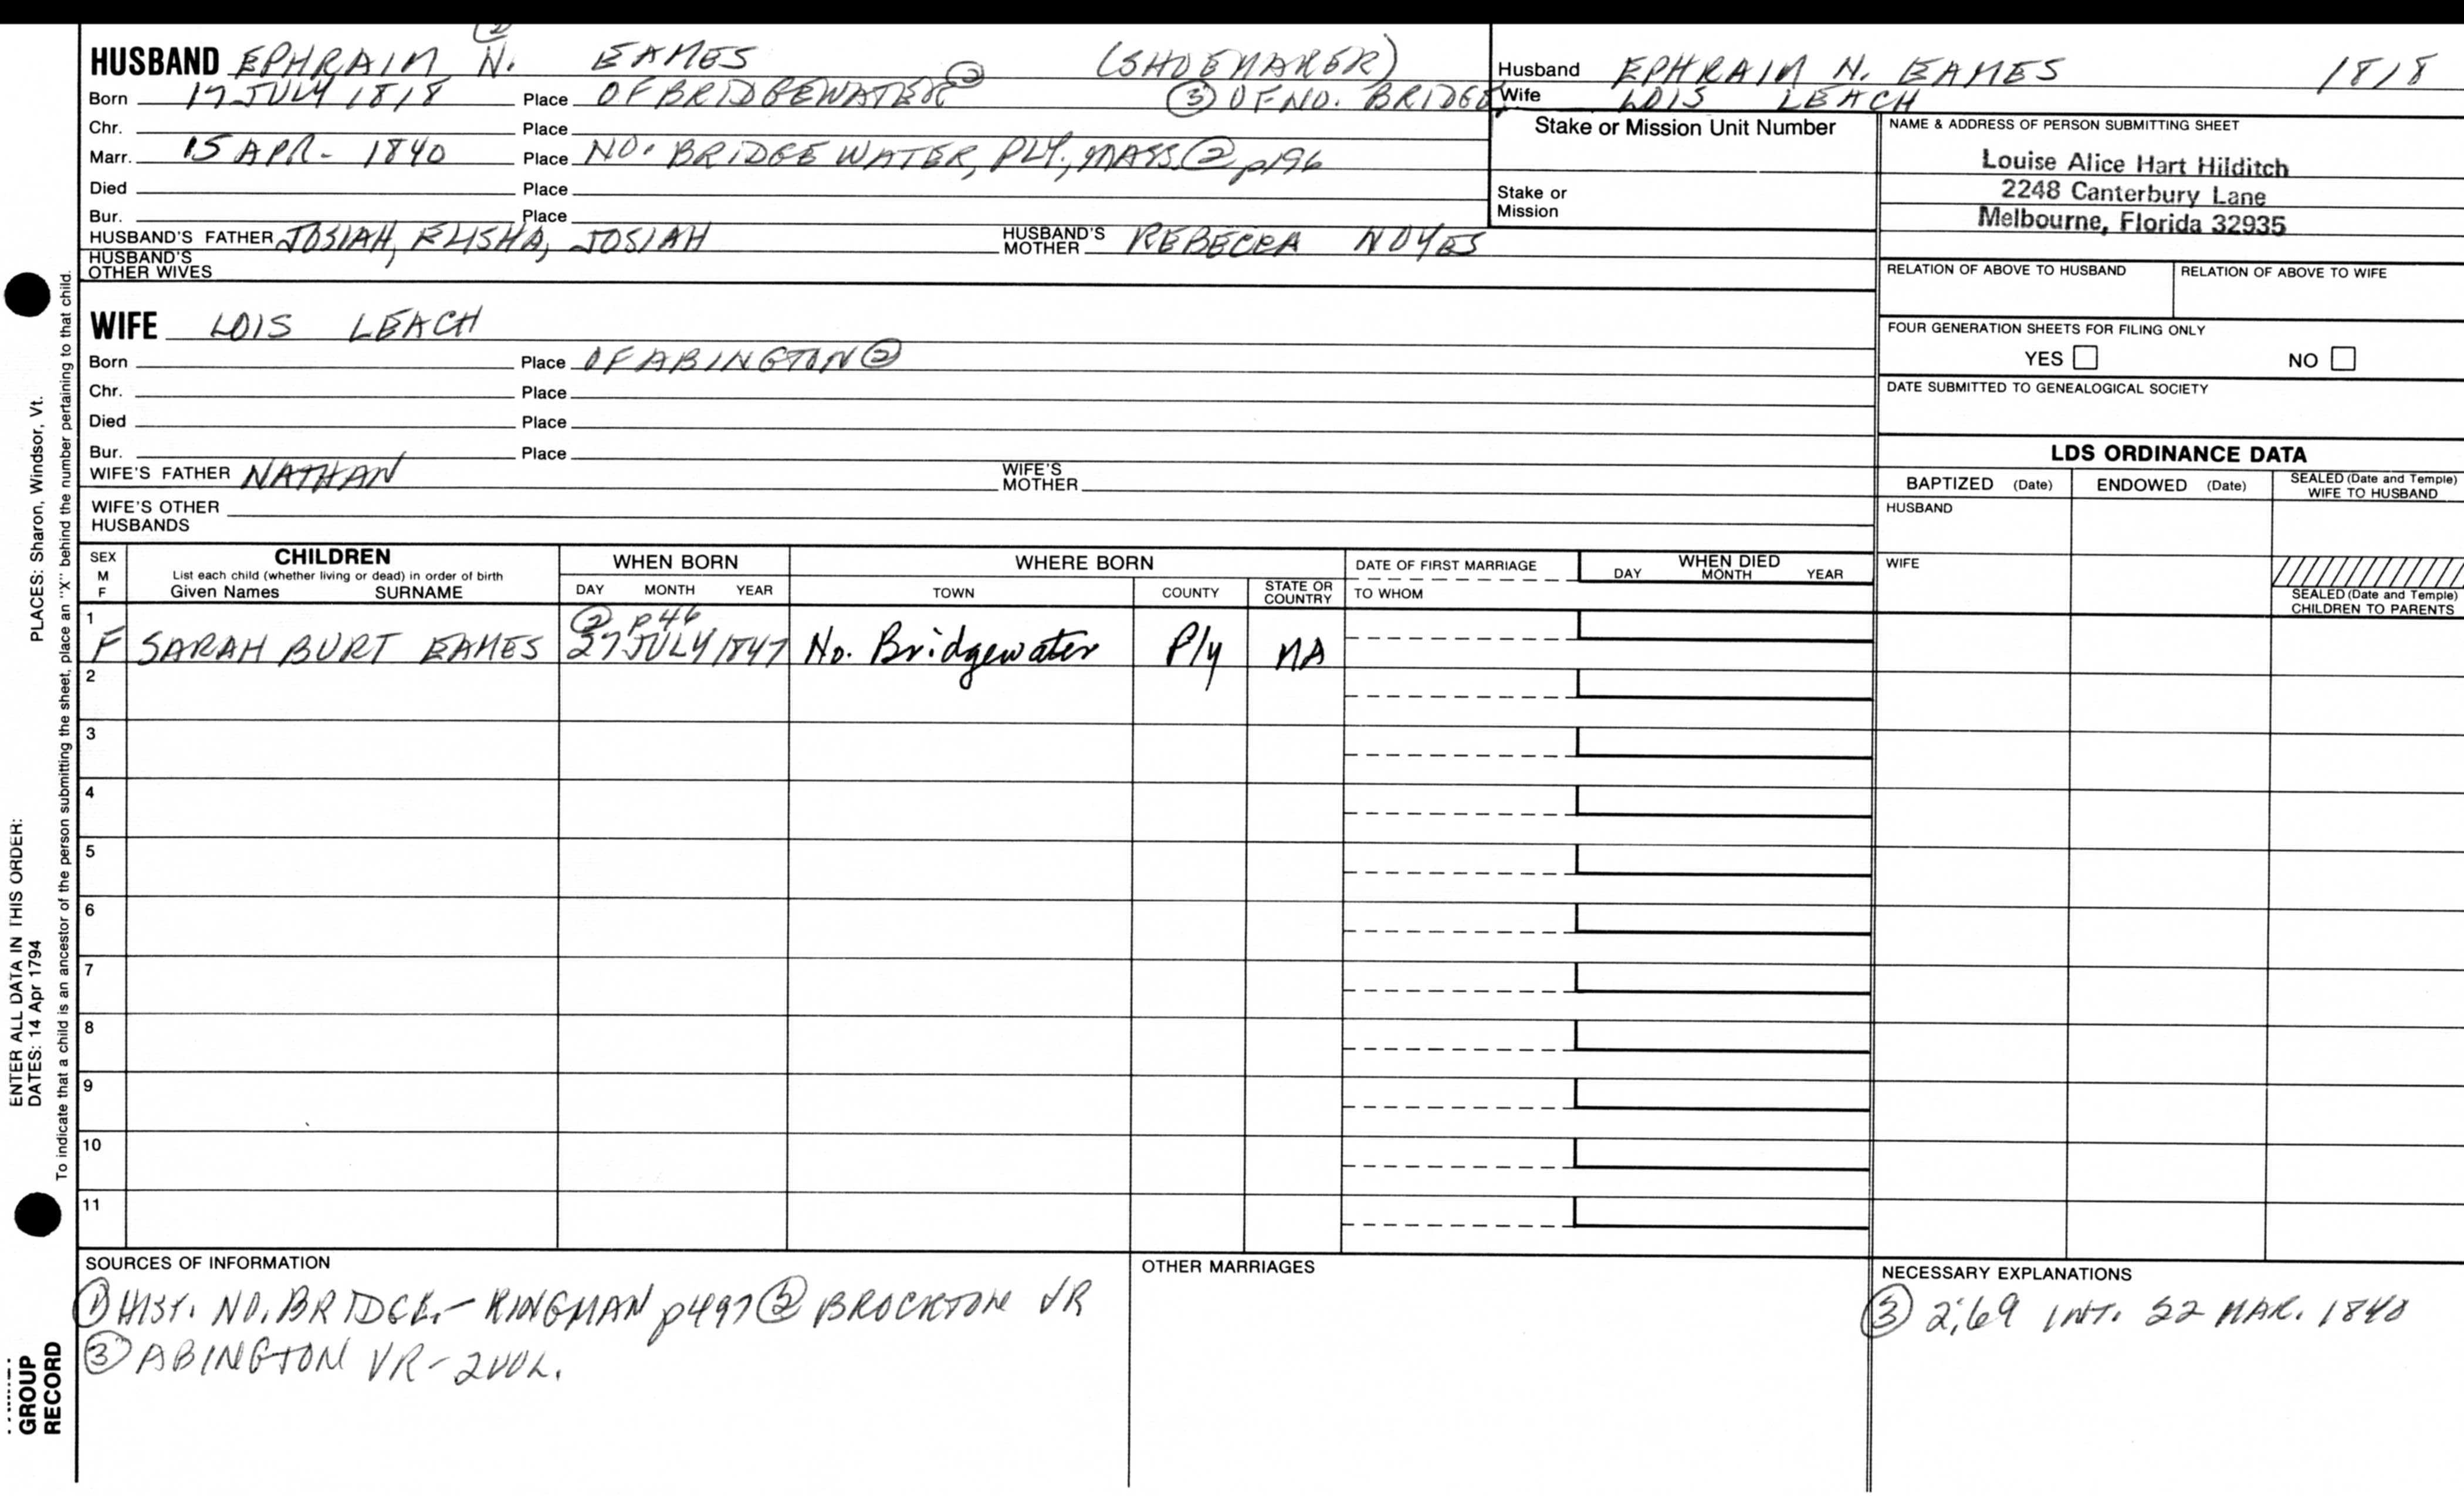 ②
HUSBAND EPHRAIM N. EAMES (SHOEMAKER)
Born 17 JULY 1818 Place OF BRIDGEWATER ② ③ OF NO. BRIDGE
Chr. Place
Marr. 15 APR - 1840 Place NO. BRIDGEWATER, PLY., MASS ② p196
Died Place
Bur. Place
HUSBAND'S FATHER JOSIAH, ELISHA, JOSIAH HUSBAND'S MOTHER REBECCA NOYES
HUSBAND'S OTHER WIVES
Husband EPHRAIM N. EAMES 1818
Wife LOIS LEACH
Stake or Mission Unit Number
Stake or Mission
NAME & ADDRESS OF PERSON SUBMITTING SHEET
Louise Alice Hart Hilditch
2248 Canterbury Lane
Melbourne, Florida 32935
RELATION OF ABOVE TO HUSBAND RELATION OF ABOVE TO WIFE
FOUR GENERATION SHEETS FOR FILING ONLY
YES NO
DATE SUBMITTED TO GENEALOGICAL SOCIETY
WIFE LOIS LEACH
Born Place OF ABINGTON ②
Chr. Place
Died Place
Bur. Place
WIFE'S FATHER NATHAN WIFE'S MOTHER
WIFE'S OTHER HUSBANDS
LDS ORDINANCE DATA
BAPTIZED (Date) ENDOWED (Date) SEALED (Date and Temple) WIFE TO HUSBAND
HUSBAND
WIFE
SEALED (Date and Temple) CHILDREN TO PARENTS
SEX M F
CHILDREN
List each child (whether living or dead) in order of birth
Given Names SURNAME
WHEN BORN
DAY MONTH YEAR
WHERE BORN
TOWN COUNTY STATE OR COUNTRY
DATE OF FIRST MARRIAGE
TO WHOM
WHEN DIED
DAY MONTH YEAR
1
② p46
F SARAH BURT EAMES 27 JULY 1847 No. Bridgewater Ply MA
2
3
4
5
6
7
8
9
10
11
SOURCES OF INFORMATION
① HIST. NO. BRIDGE. - KINGMAN p497 ② BROCKTON VR
③ ABINGTON VR - 2 VOL.
OTHER MARRIAGES
NECESSARY EXPLANATIONS
③ 2:69 INT. 22 MAR. 1840
PLACES: Sharon, Windsor, Vt.
ENTER ALL DATA IN THIS ORDER:
DATES: 14 Apr 1794
To indicate that a child is an ancestor of the person submitting the sheet, place an "X" behind the number pertaining to that child.
GROUP
RECORD